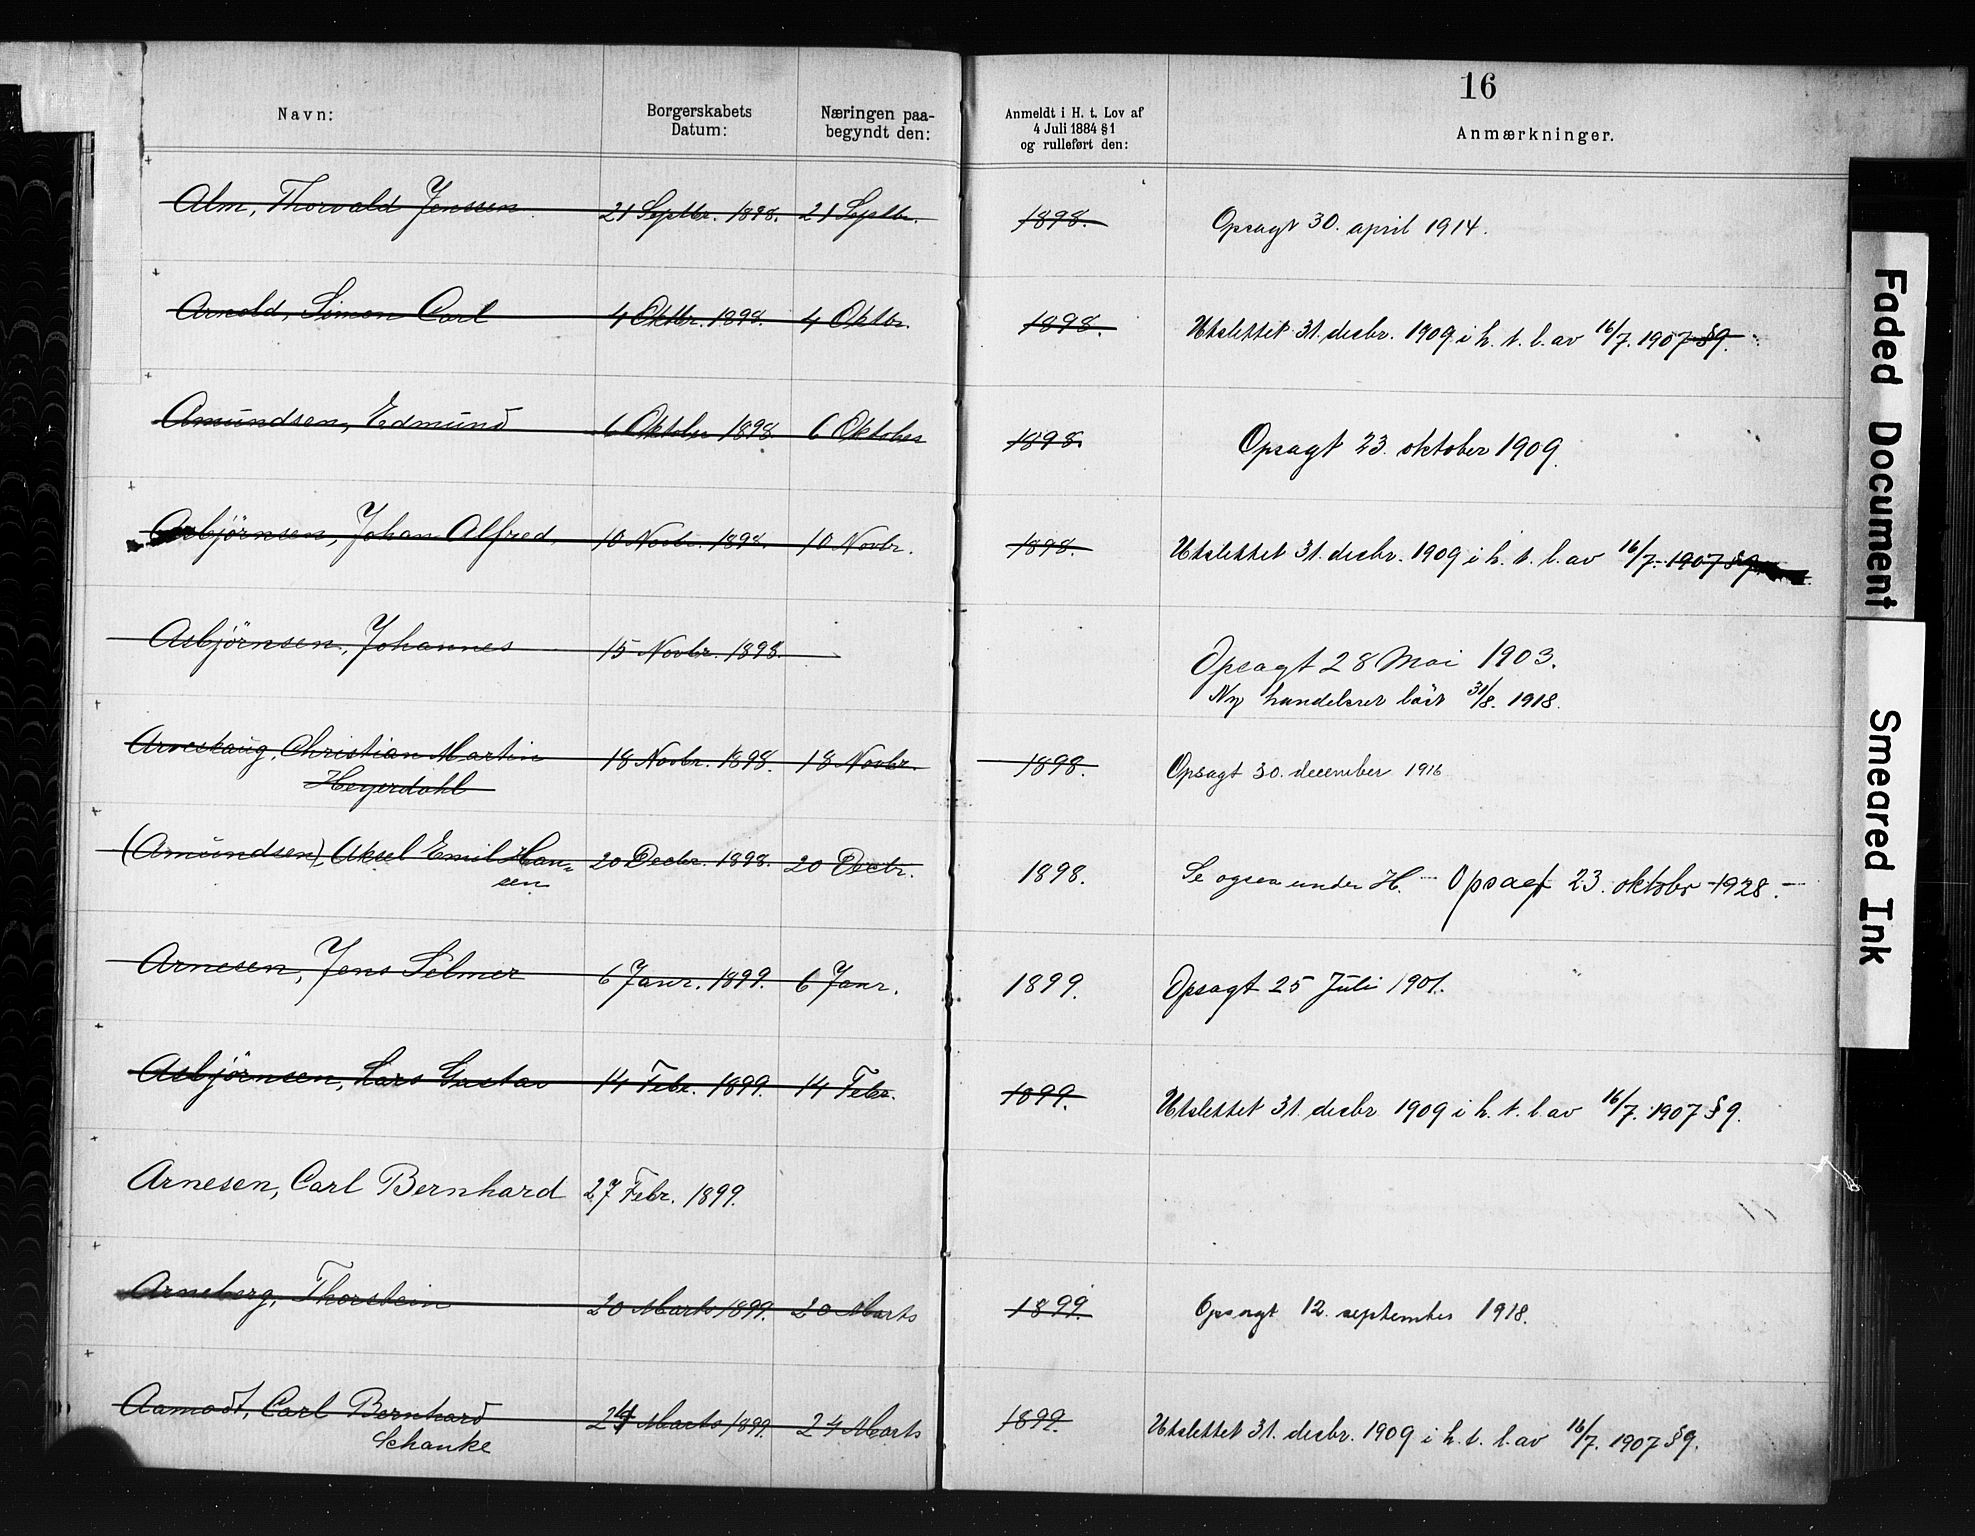 16
Navn: Borgerskabets Datum: Næringen paa-begyndt den: Anmeldt i H. t. Lov af 4 Juli 1884 § 1 og rulleført den: Anmærkninger.
Alm, Thorvald Jenssen 21 Septbr. 1898. 21 Septbr. 1898. Opsagt 30. april 1914.
Arnold, Simon Carl 4 Oktbr. 1898. 4 Oktbr. 1898. Utslettet 31. decbr. 1909 i h. t. l. av 16/7. 1907 § 9.
Amundsen, Edmund 6 Oktober 1898 6 Oktober 1898. Opsagt 23. oktober 1909.
Asbjörnsen, Johan Alfred, 10 Novbr. 1898. 10 Novbr. 1898. Utslettet 31. decbr. 1909 i h. t. l. av 16/7. 1907 § 9
Asbjörnsen, Johannes 15 Novbr. 1898. Opsagt 28 Mai 1903.
Ny handelsret löst 31/8. 1918.
Arneskaug, Christian Martin 18 Novbr. 1898. 18 Novbr. 1898. Opsagt 30. december 1916
Heyerdahl
(Amundsen), Aksel Emil Han- 20 Decbr. 1898. 20 Decbr. 1898. Se ogsaa under H. – Opsagt 23. oktobr 1928. –
sen
Arnesen, Jens Selmer 6 Janr. 1899. 6 Janr. 1899. Opsagt 25 Juli 1901.
Asbjörnsen, Lars Gustav 14 Febr. 1899. 14 Febr. 1899. Utslettet 31. decbr 1909 i h. t. l. av 16/7. 1907 § 9.
Arnesen, Carl Bernhard 27 Febr. 1899.
Arneberg, Thorstein 20 Marts 1899. 20 Marts 1899. Opsagt 12. september 1918.
Aamodt, Carl Bernhard 24 Marts 1899. 24 Marts 1899. Utslettet 31. decbr. 1909 i h. t. l. av 16/7. 1907 § 9.
Schanke
Faded Document
Smeared Ink